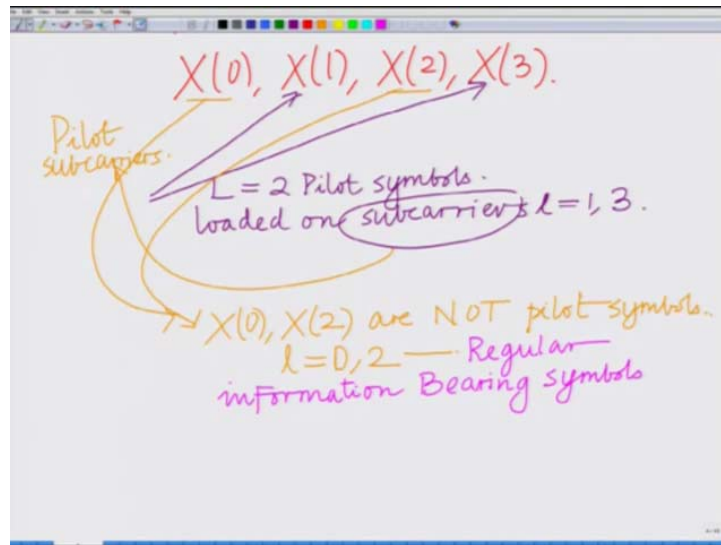 X(0), X(1), X(2), X(3).
Pilot
subcarriers.
L = 2 Pilot symbols.
loaded on subcarriers l = 1, 3.
X(0), X(2) are NOT pilot symbols.
l = 0, 2 — Regular
information Bearing symbols